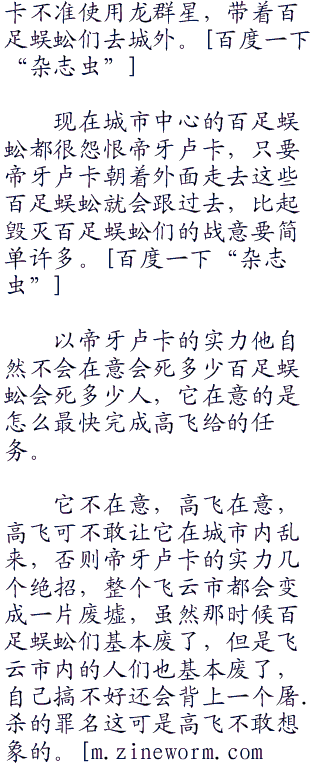 卡不准使用龙群星，带着百
足蜈蚣们去城外。[百度一下
“杂志虫”]
现在城市中心的百足蜈
蚣都很怨恨帝牙卢卡，只要
帝牙卢卡朝着外面走去这些
百足蜈蚣就会跟过去，比起
毁灭百足蜈蚣们的战意要简
单许多。[百度一下“杂志
虫”]
以帝牙卢卡的实力他自
然不会在意会死多少百足蜈
蚣会死多少人，它在意的是
怎么最快完成高飞给的任
务。
它不在意，高飞在意，
高飞可不敢让它在城市内乱
来，否则帝牙卢卡的实力几
个绝招，整个飞云市都会变
成一片废墟，虽然那时候百
足蜈蚣们基本废了，但是飞
云市内的人们也基本废了，
自己搞不好还会背上一个屠.
杀的罪名这可是高飞不敢想
象的。[m.zineworm.com